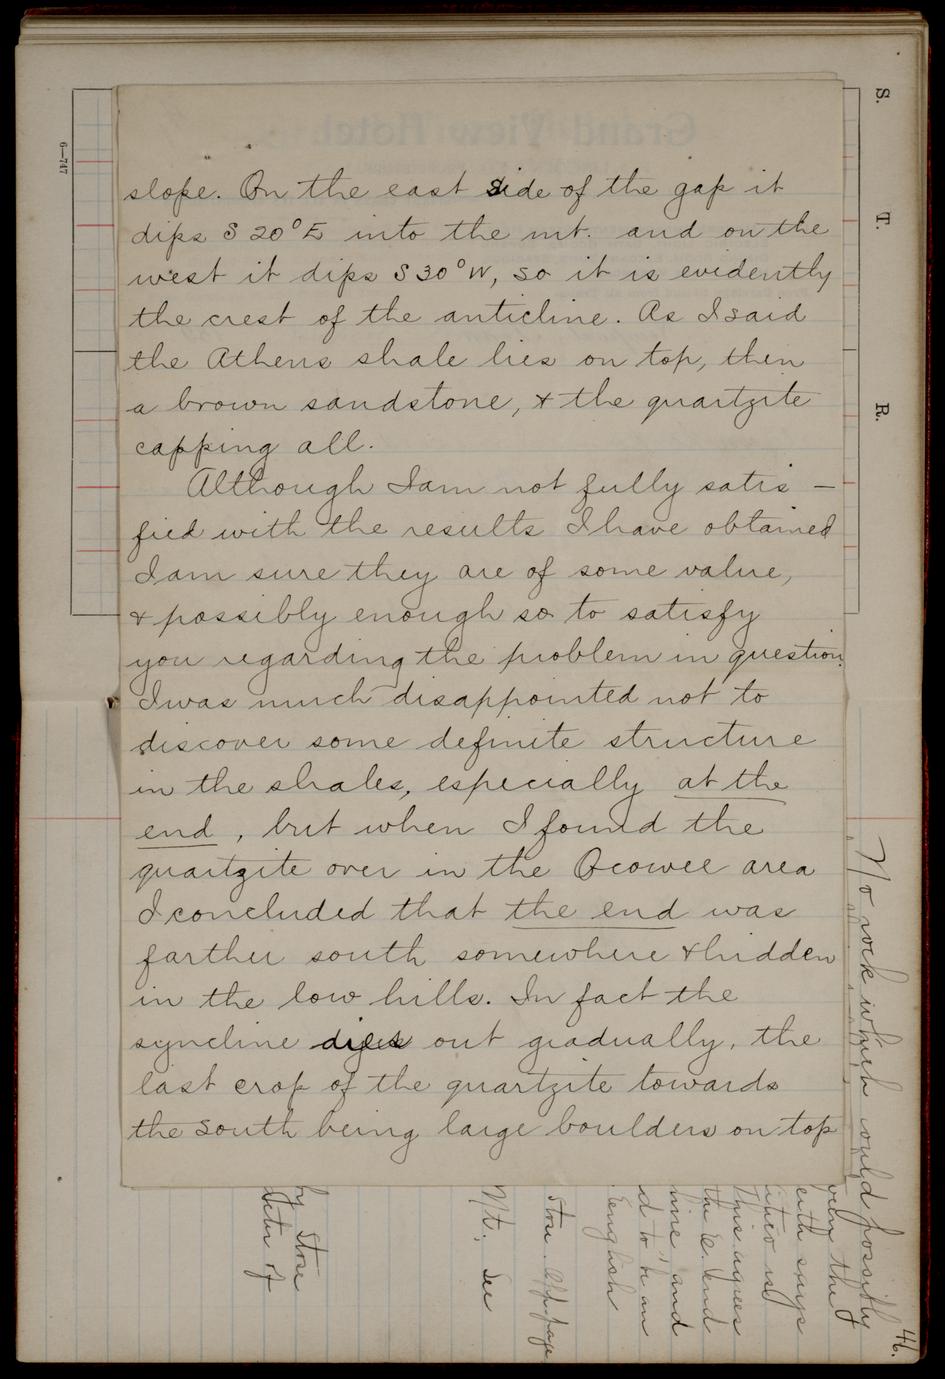 slope. On the east side of the gap it
dips S 20° E into the mt. and on the
west it dips S 30° W, so it is evidently
the crest of the anticline. As I said
the Athens shale lies on top, then
a brown sandstone, & the quartzite
capping all.
Although I am not fully satis-
fied with the results I have obtained
I am sure they are of some value,
& possibly enough so to satisfy
you regarding the problem in question.
I was much disappointed not to
discover some definite structure
in the shales, especially at the
end, but when I found the
quartzite over in the Ocowee area
I concluded that the end was
farther south somewhere & hidden
in the low hills. In fact the
syncline dies out gradually, the
last crop of the quartzite towards
the south being large boulders on top
S.
T.
R.
6—747
Grand View Hotel
46.
No rock which could possibly
over the
with says
is
This agrees
the E. end
and
d to be an
English
Stose. Opp page
Mt. See
by Stose